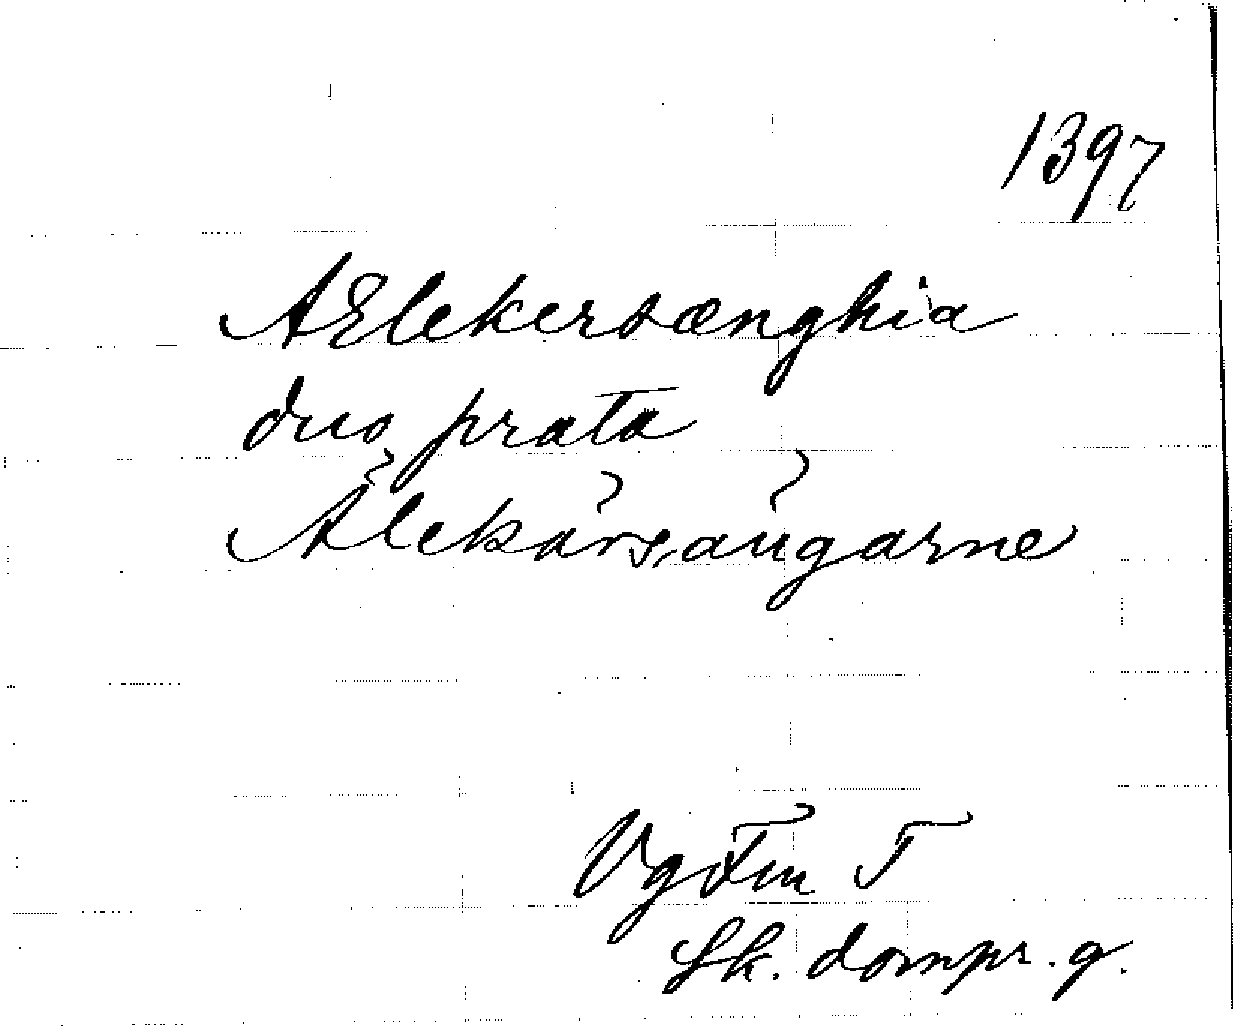 1397
AElekersænghia
duo prata
Älekärsängarne
Vg Fm T
Sk. dompr. g.